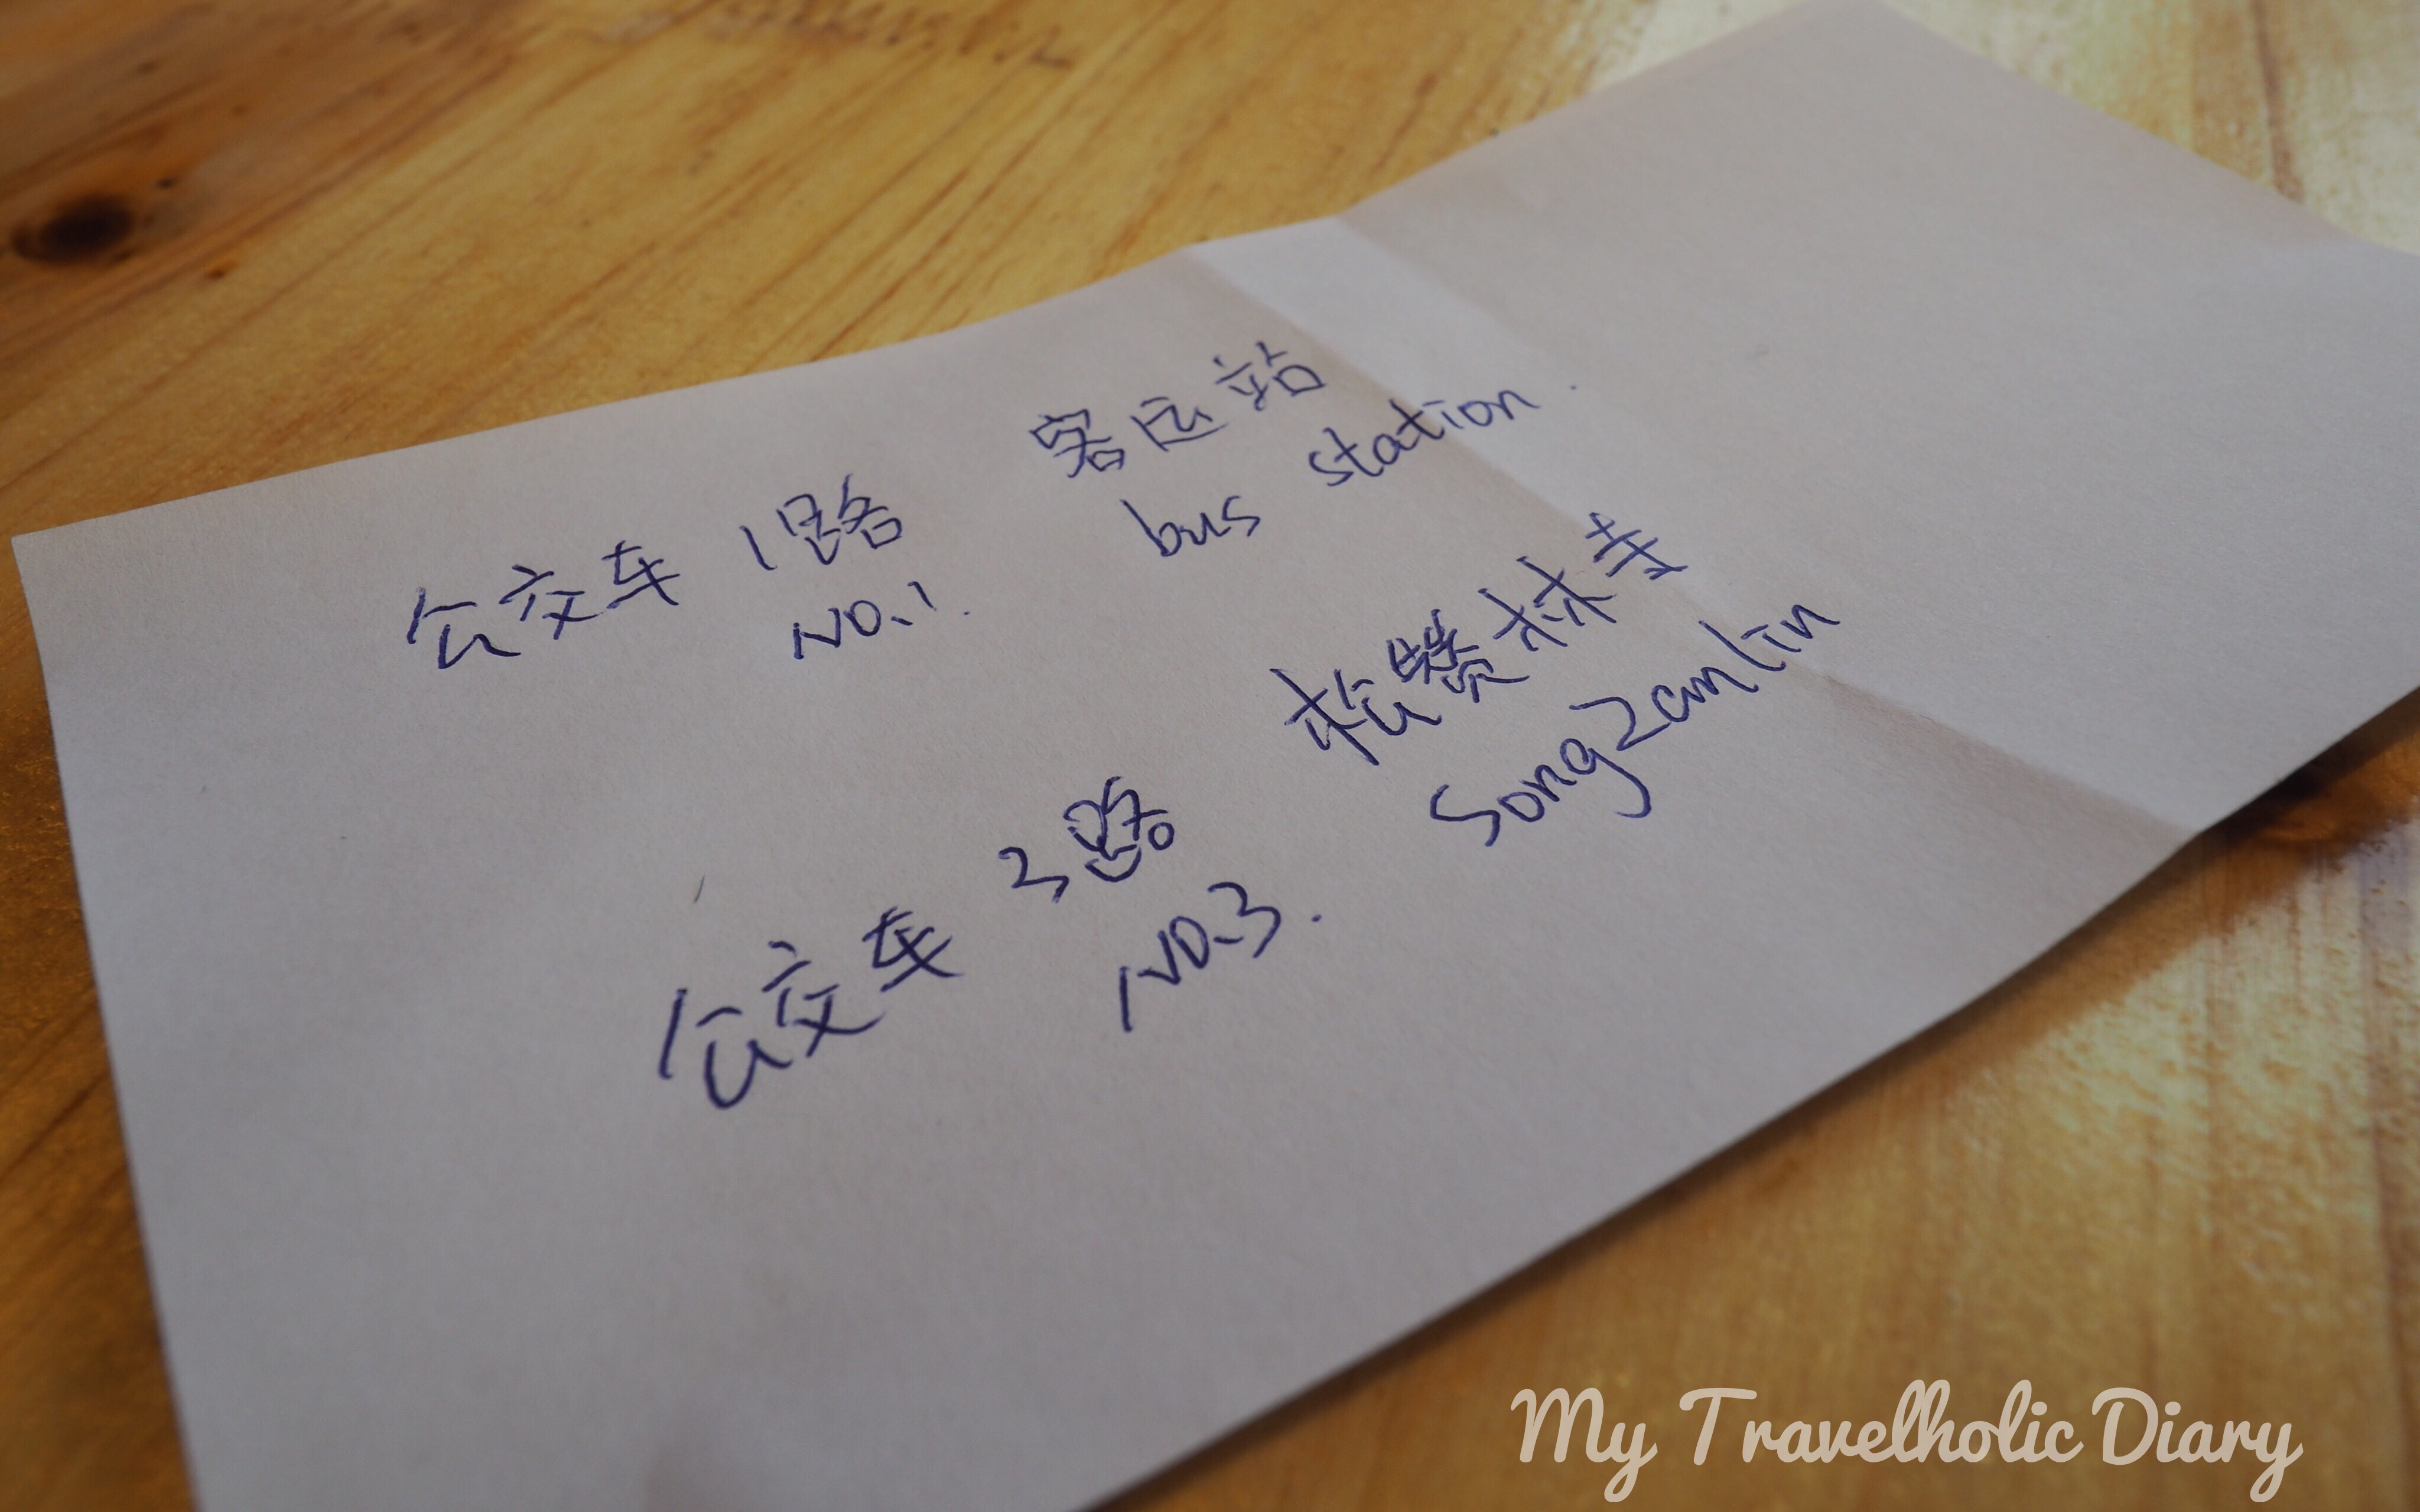 公交车 1路 客运站
NO.1. bus station.
公交车 3路 松赞林寺
NO.3. Songzanlin
My Travelholic Diary